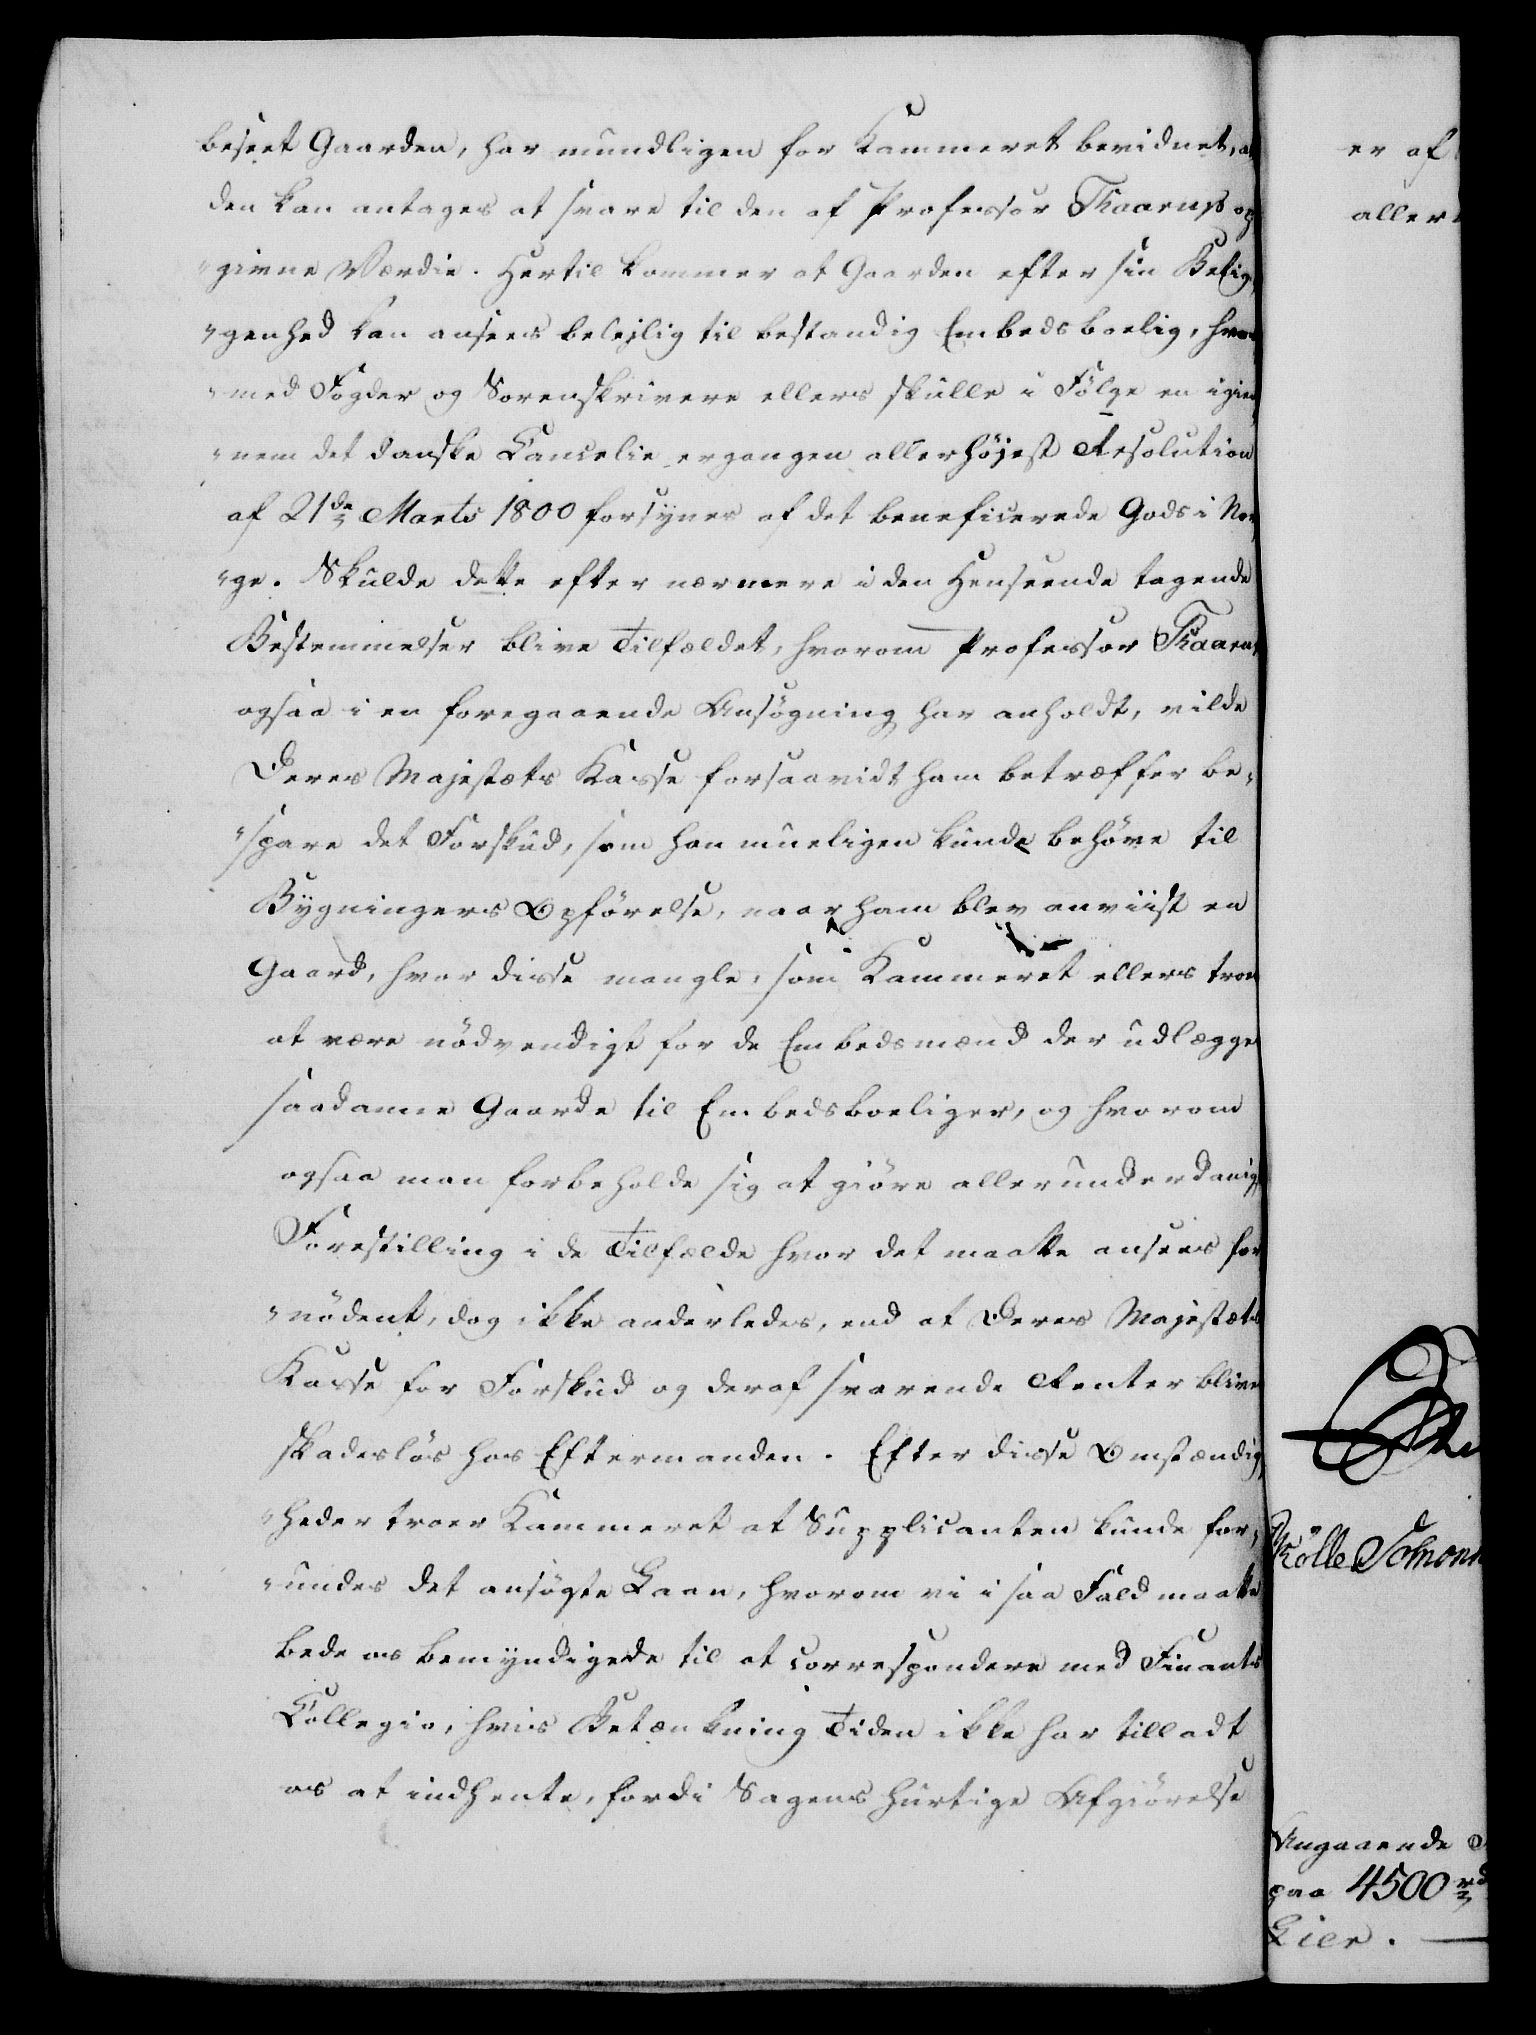 beseet Gaarden, har mundligen for Kammeret bevidnet, at
den kan antages at svare til den af Professor Thaarup op
"givne Værdie. Hertil kommer at Gaarden efter sin Belig,
"genhed kan ansees belejlig til bestandig Embedsboelig, hvor
"med Fogder og Sorenskrivere ellers skulle i Fölge en igien
"nem det danske Cancelie ergangen allerhöjest Resolution
af 21de Marts 1800 forsynes af det beneficerede Gods i Nor,
"ge. Skulde dette efter nærmere i den Henseende tagende
Bestemmelser blive Tilfældet, hvorom Professor Thaarup
ogsaa i en foregaaende Ansögning har anholdt, vilde
Deres Majestæts Kasse forsaavidt ham betræffer be,
"spare det Forskud, som han mueligen kunde behöve til
Bygningers Opförelse, naar ham blev anviist en
Gaard, hvor disse mangle, som Kammeret ellers troer
at være nödvendigt for de Embedsmænd der udlægges
saadanne Gaarde til Embedsboeliger, og hvorom
ogsaa man forbeholde sig at giöre allerunderdanigst
Forestilling i de Tilfælde hvor det maatte ansees for
"nödent, dog ikke anderledes, end at Deres Majestæts
Kasse for Forskud og deraf svarende Renter bliver
skadeslös hos Eftermanden. Efter disse Omstændig,
"heder troer Kammeret at Supplicanten kunde for,
"undes det ansögte Laan, hvorom vi i saa Fald maatte
bede os bemyndigede til at correspondere med Finants
Collegio, hvis Betænkning Tiden ikke har tilladt
os at indhente, fordi Sagens hurtige Afgiörelse
er af
aller
Angaaende
paa 4500 rd
Lier.